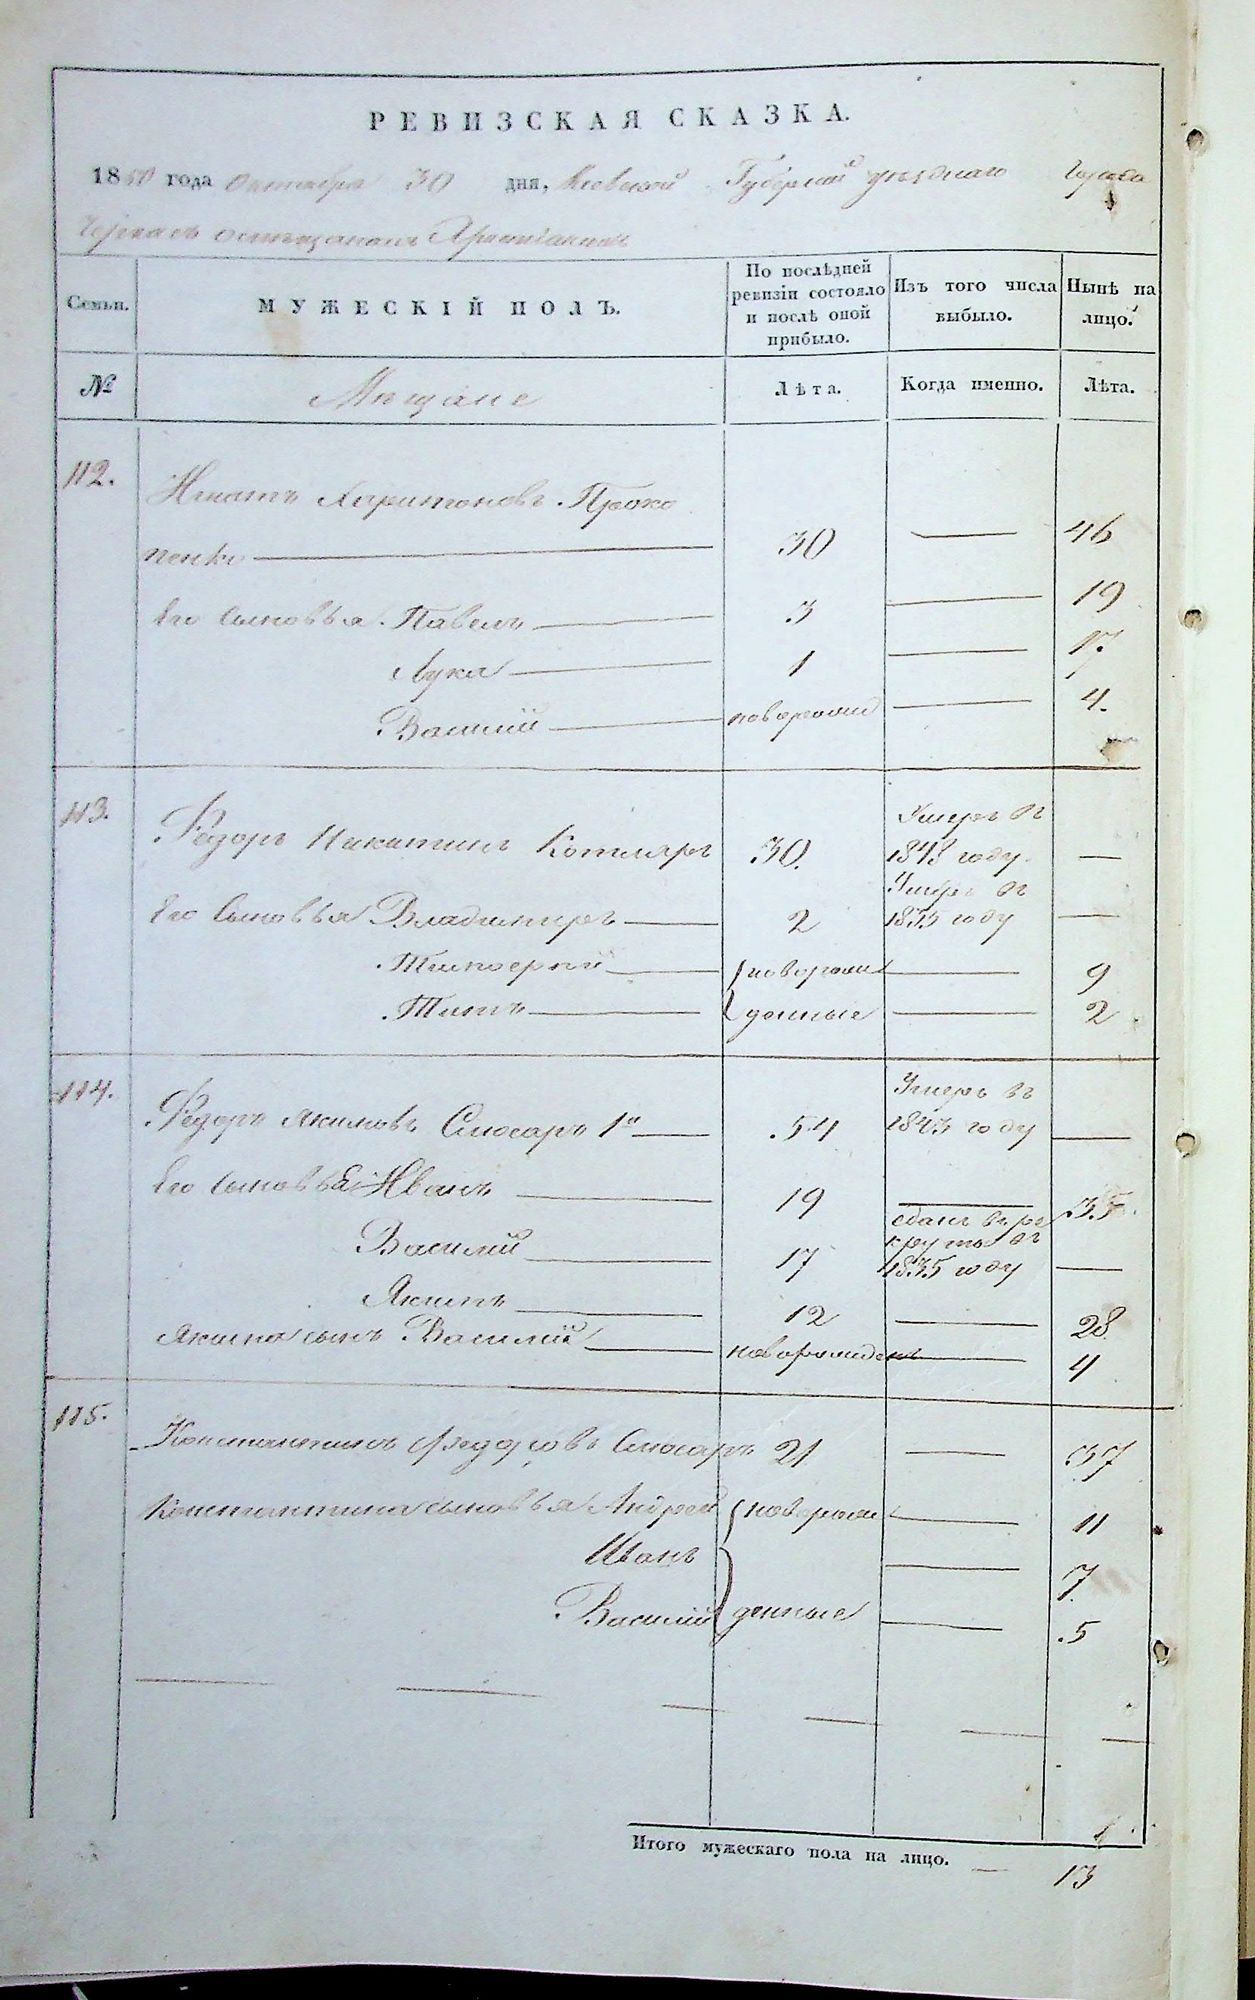 РЕВИЗСКАЯ СКАЗКА.
1850 года Октября 30 дня, Киевской Губернии уезднаго Города
Черкасъ о мещанахъ Христианахъ
Семьи. МУЖЕСКІЙ ПОЛЪ. По послѣдней ревизіи состояло и послѣ оной прибыло. Изъ того числа выбыло. Нынѣ на лицо.
№ Мѣщане Лѣта. Когда именно. Лѣта.
112. Игнатъ Харитоновъ Проко
пенко 30 — 46
Его сыновья Павелъ 3 — 19
Лука 1 — 17.
Василий новорожд — 4.
113. Федоръ Никитинъ Котляръ 30. Умеръ въ 1848 году. —
Его сыновья Владимиръ 2 Умеръ въ 1835 году —
Тимоферий новорож — 9
Титъ денные — 2
114. Федоръ Якимовъ Слюсаръ 1й 54 Умеръ въ 1843 году —
Его сыновья Иванъ 19 — 35.
Василий 17 сданъ въ рекруты въ 1835 году —
Якимъ 12 — 28
Якима сынъ Василий новорожденъ — 4
115. Константинъ Федоровъ Слюсаръ 21 — 37
Константина сыновья Андрей новорож — 11
Иванъ — 7.
Василий денные — 5
Итого мужескаго пола на лицо. — 13